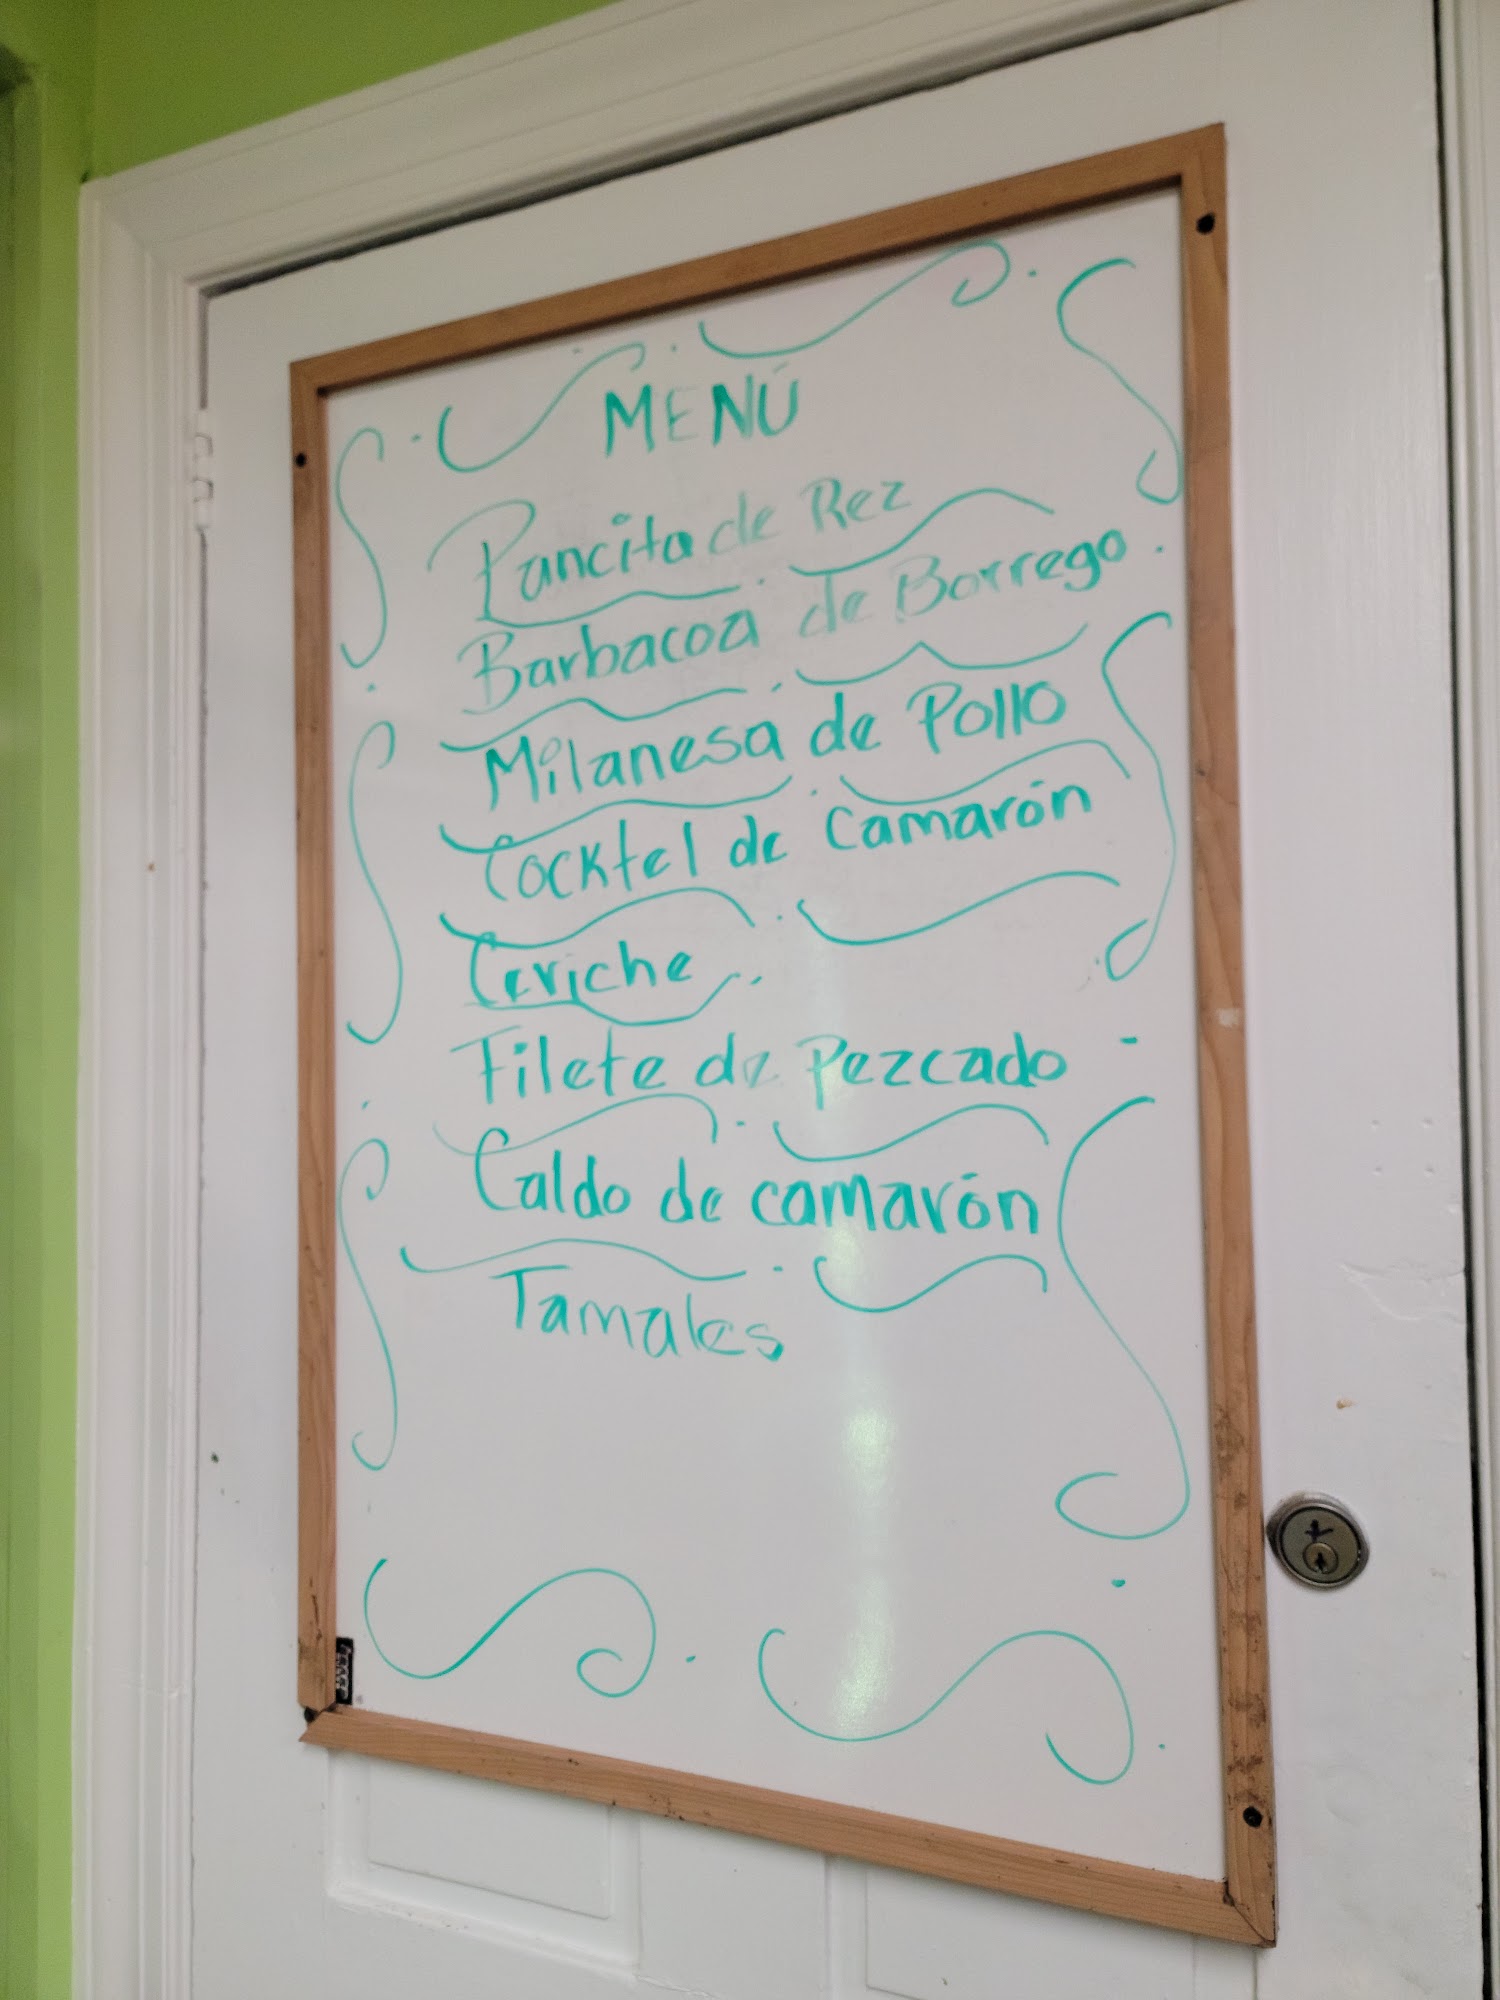 MENÚ
Pancita de Rez
Barbacoa de Borrego
Milanesa de Pollo
Cocktel de Camarón
Ceviche
Filete de Pezcado
Caldo de camarón
Tamales